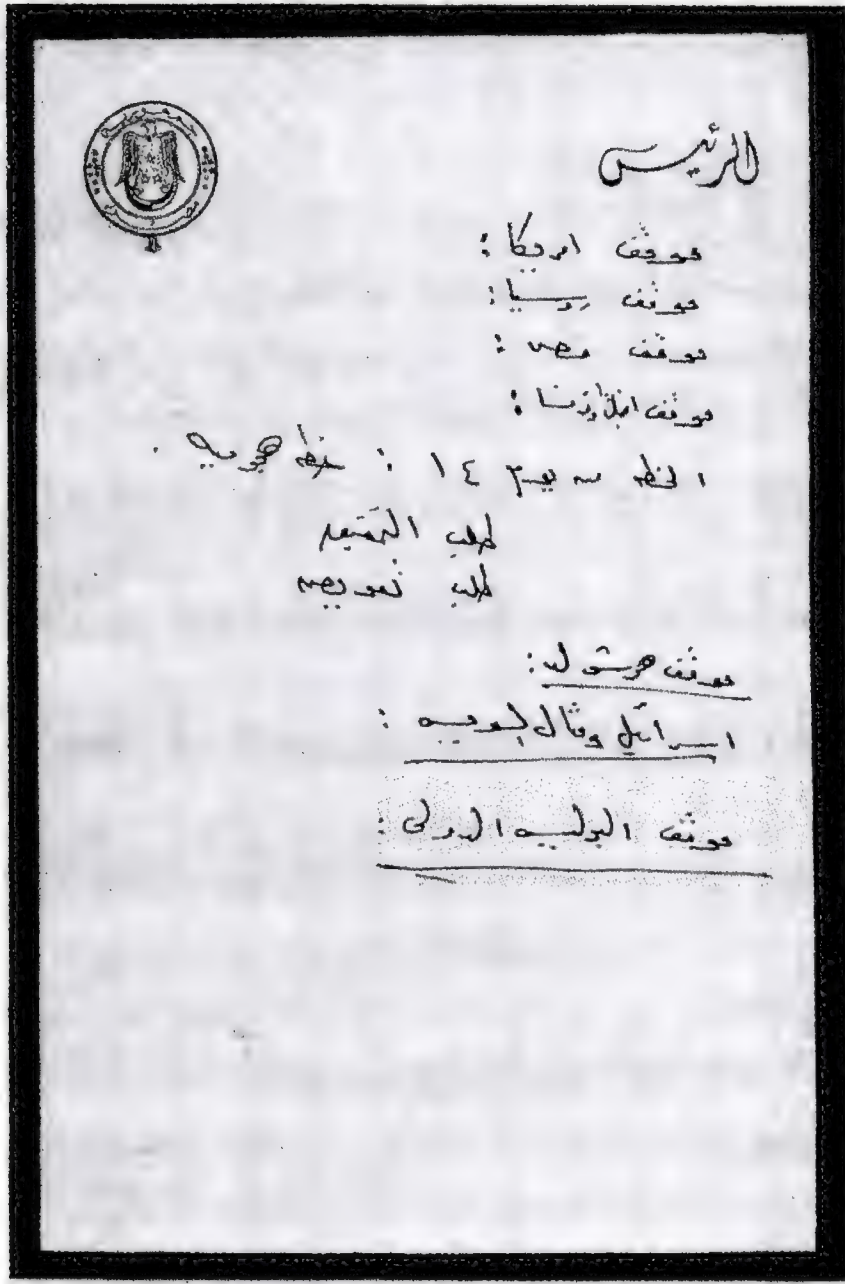 الرئيس
موقف امريكا :
موقف روسيا :
موقف مصر :
موقف انجلترا وفرنسا :
الخطه من يوم ١٤ : خطه هجوميه .
طلب التهيئه
طلب تعويض
موقف همرشولد :
اسرائيل وقنال السويس :
موقف البوليس الدولى :